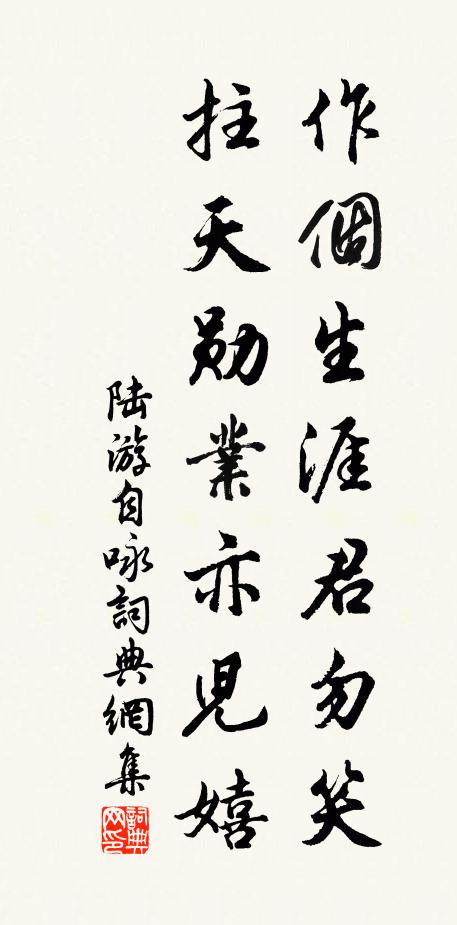 作個生涯君勿笑
拄天勛業亦兒嬉
陆游自咏詞典網集
詞典网印